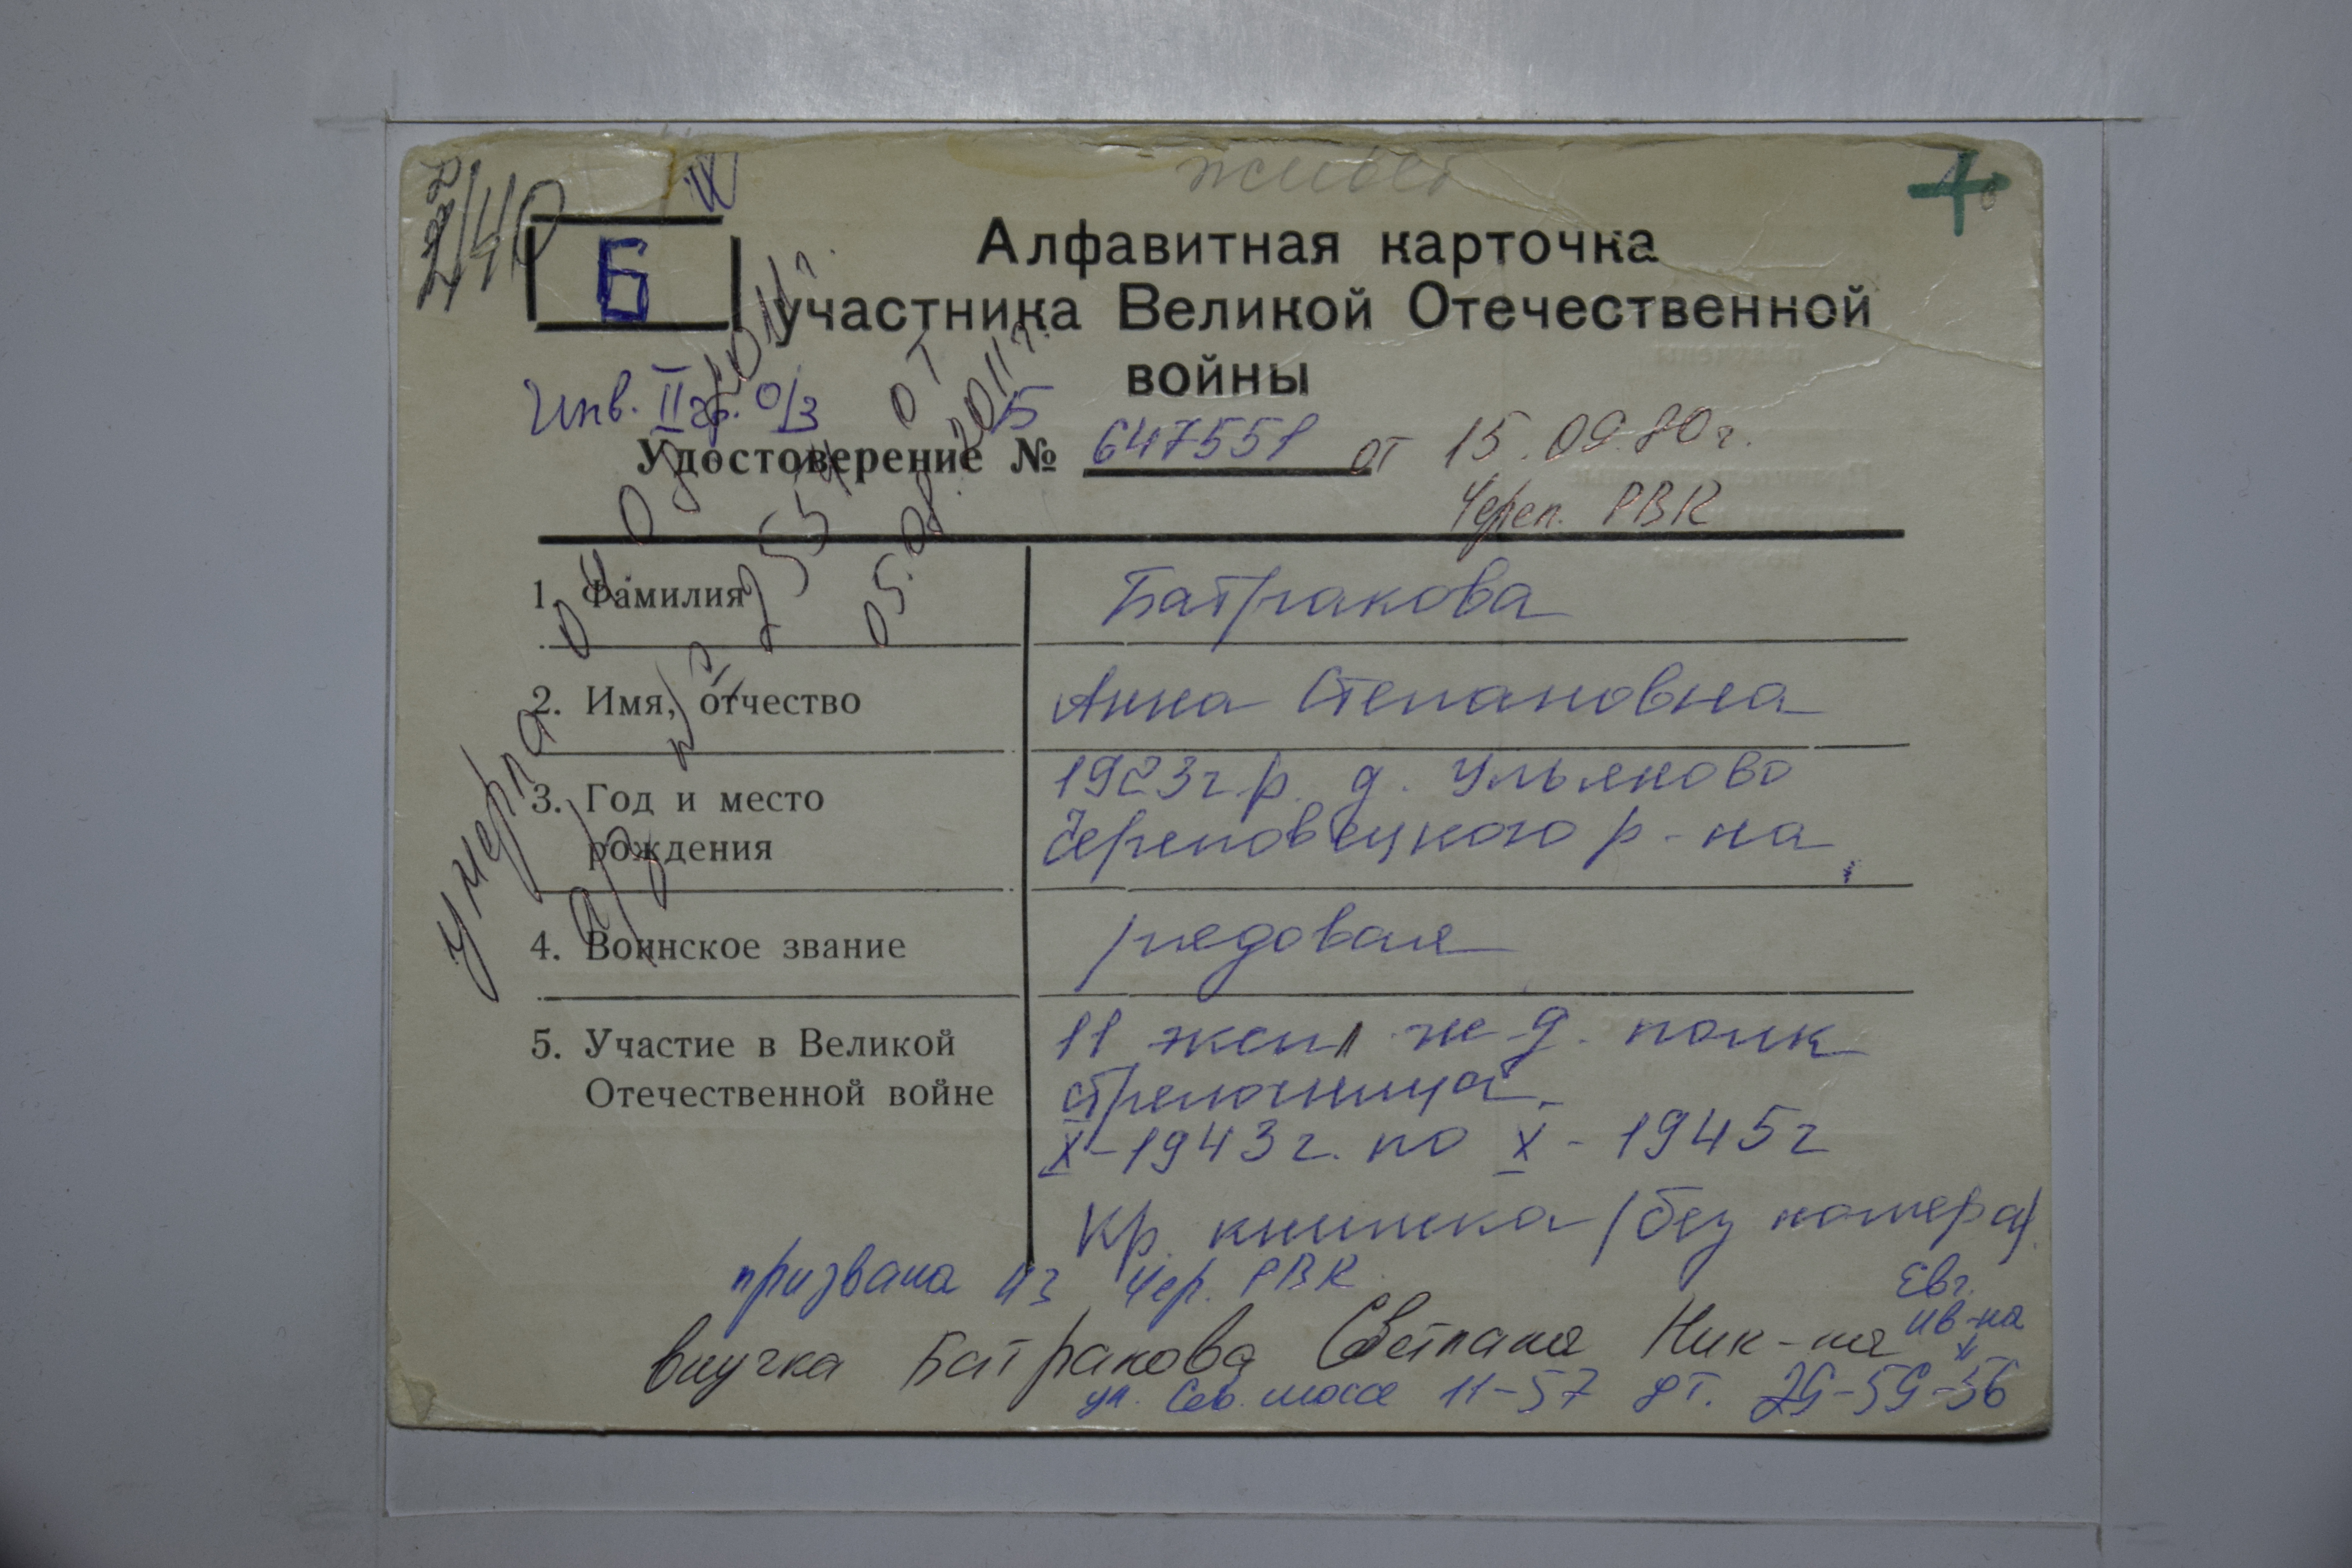 живет
2/40
Б
Алфавитная карточка
участника Великой Отечественной
войны
Инв. II гр. О/З
Удостоверение № 647551 от 15.09.80 г.
Череп. РВК
1. Фамилия Батракова
2. Имя, отчество Анна Степановна
3. Год и место 1923 г.р. д. Ульяново
рождения Череповецкого р-на
4. Воинское звание рядовая
5. Участие в Великой 11 экспл ж-д. полк
Отечественной войне стрелочница
X-1943 г. по X-1945 г
Кр. книжка (без номера)
призвана из Чер. РВК
Евг.
Ив-на
внучка Батракова Светлана Ник-на
ул. Сев. шоссе 11-57 дт. 29-59-56
умерла 04.07.2011 г.
а/з № 2554 от
05.08.2011 г.